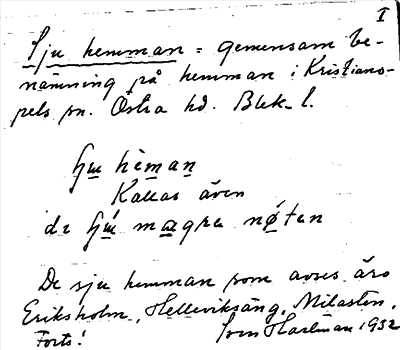 I
Sju hemman = gemensam be-
nämning på hemman i Kristiano-
pels sn. Östra hd. Blek. l.
hɯ hèman
Kallas även
de hɯ́ magra nǿten
De sju hemman som avses äro
Eriksholm, Helleviksäng, Milasten,
Forts! Sven Hartman 1932